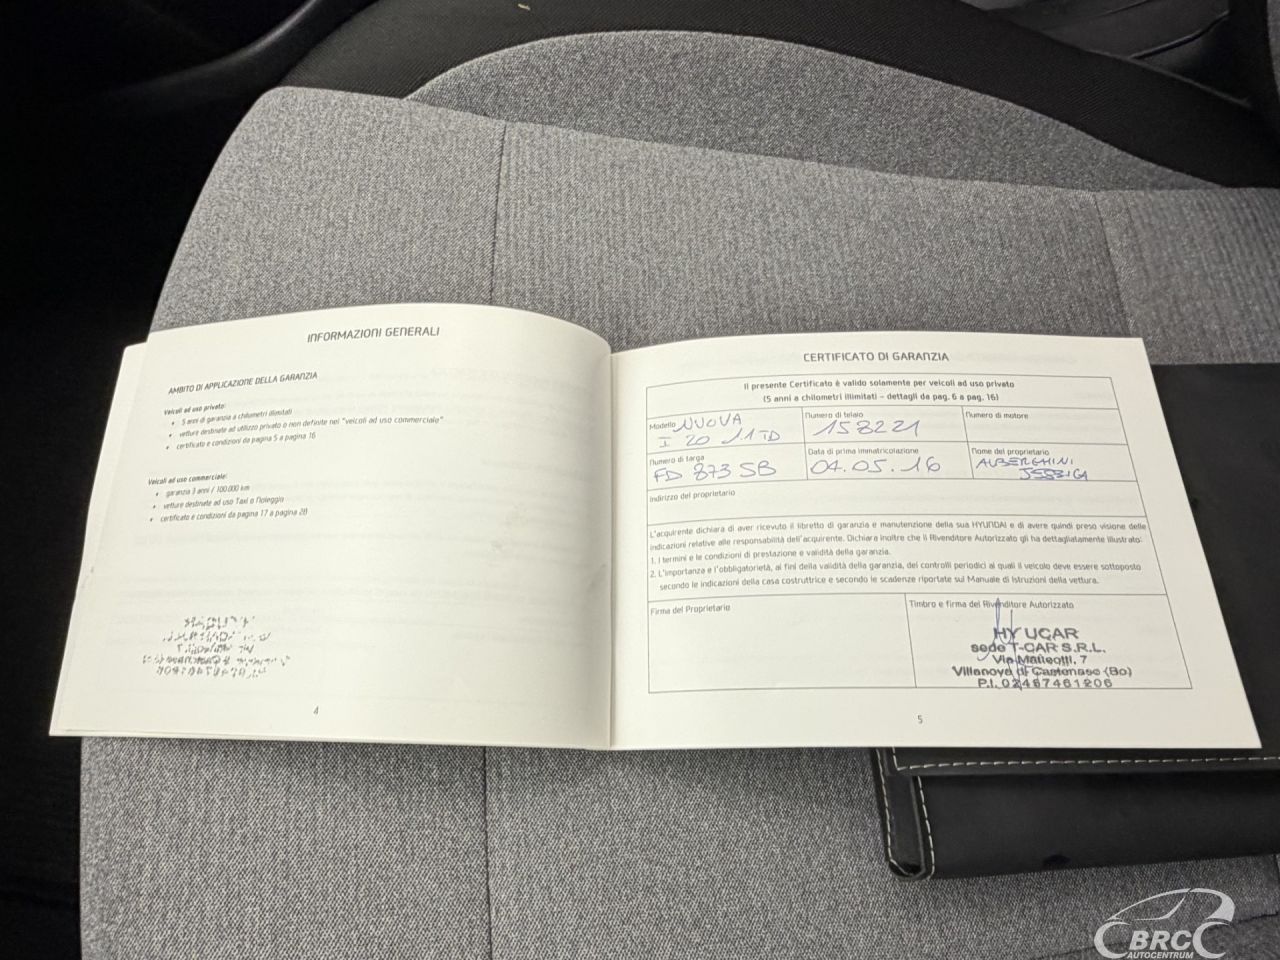 INFORMAZIONI GENERALI
AMBITO DI APPLICAZIONE DELLA GARANZIA
Veicoli ad uso privato:
• 5 anni di garanzia a chilometri illimitati
• vetture destinate ad utilizzo privato o non definite nei "veicoli ad uso commerciale"
• certificato e condizioni da pagina 5 a pagina 16
Veicoli ad uso commerciale:
• garanzia 3 anni / 100.000 km
• vetture destinate ad uso Taxi o Noleggio
• certificato e condizioni da pagina 17 a pagina 28
4
CERTIFICATO DI GARANZIA
Il presente Certificato è valido solamente per veicoli ad uso privato
(5 anni a chilometri illimitati - dettagli da pag. 6 a pag. 16)
Modello NUOVA
I 20 1.1 TD
Numero di telaio
158221
Numero di motore
Numero di targa
FD 873 SB
Data di prima immatricolazione
04.05.16
Nome del proprietario
AUBERGHINI
JESSICA
Indirizzo del proprietario
L'acquirente dichiara di aver ricevuto il libretto di garanzia e manutenzione della sua HYUNDAI e di avere quindi preso visione delle
indicazioni relative alle responsabilità dell'acquirente. Dichiara inoltre che il Rivenditore Autorizzato gli ha dettagliatamente illustrato:
1. I termini e le condizioni di prestazione e validità della garanzia.
2. L'importanza e l'obbligatorietà, ai fini della validità della garanzia, dei controlli periodici ai quali il veicolo deve essere sottoposto
secondo le indicazioni della casa costruttrice e secondo le scadenze riportate sul Manuale di Istruzioni della vettura.
Firma del Proprietario
Timbro e firma del Rivenditore Autorizzato
HYUCAR
sede T-CAR S.R.L.
Via Matteotti, 7
Villanova di Castenaso (Bo)
P.I. 02467461206
5
BRC
AUTOCENTRUM